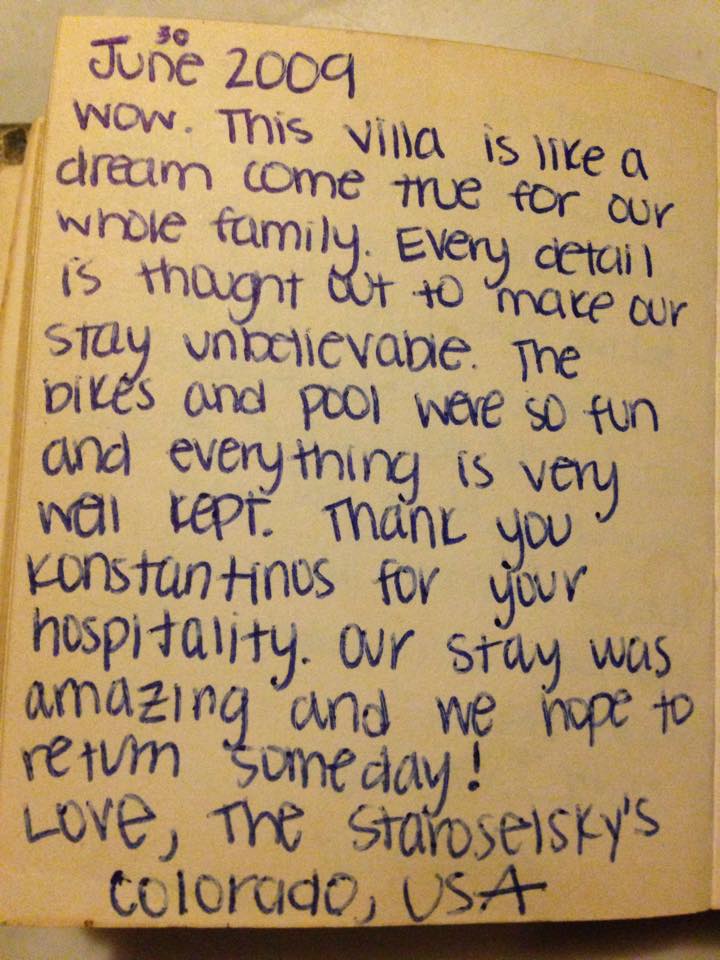 June 30 2009
wow. This villa is like a
dream come true for our
whole family. Every detail
is thought out to make our
stay unbelievable. The
bikes and pool were so fun
and everything is very
well kept. Thank you
Konstantinos for your
hospitality. Our stay was
amazing and we hope to
return someday!
Love, The Staroselsky's
Colorado, USA